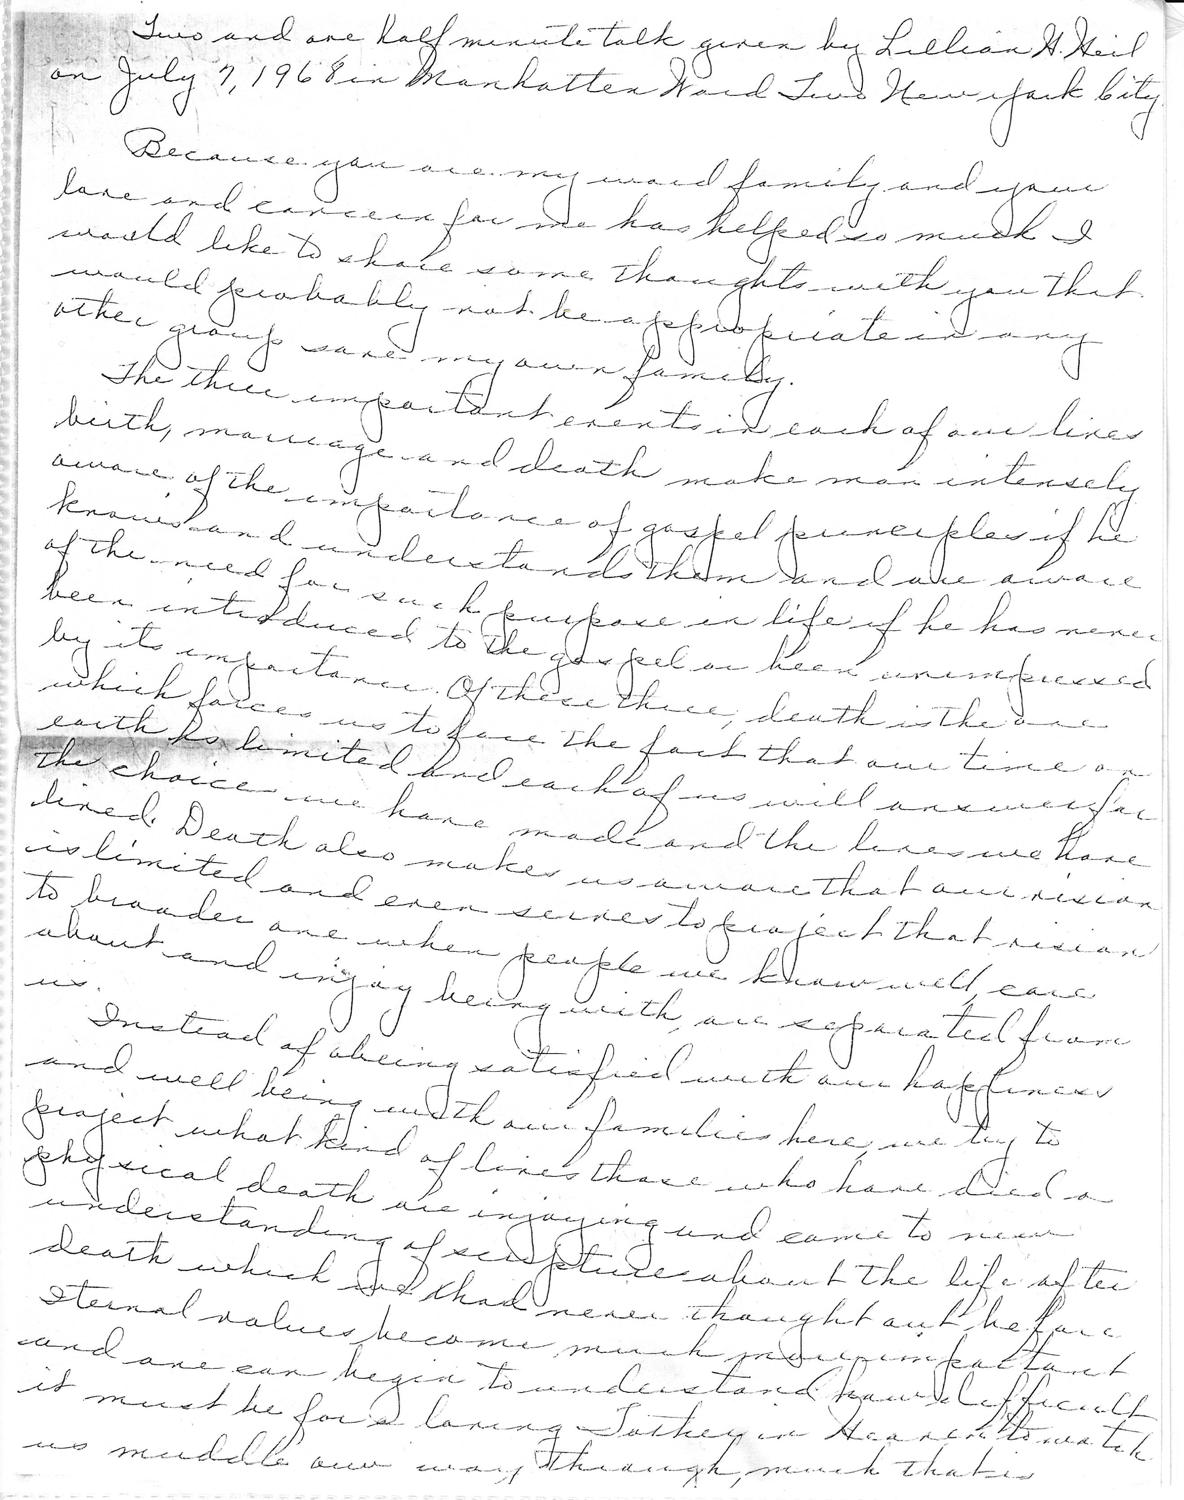 Two and one half minute talk given by Lillian H. Heil
on July 7, 1968 in Manhatten Ward Two New York City
Because you are my ward family and your
love and concern for me has helped so much I
would like to share some thoughts with you that
would probably not be appropriate in any
other group save my own family.
The three important events in each of our lives
birth, marriage and death make man intensely
aware of the importance of gospel principles if he
knows and understands them and are aware
of the need for such purpose in life if he has never
been introduced to the gospel or been unimpressed
by its importance. Of these three, death is the one
which forces us to face the fact that our time on
earth is limited and each of us will answer for
the choice we have made and the lives we have
lived. Death also makes us aware that our vision
is limited and even serves to project that vision
to broader one when people we know well, care
about and injoy being with, are separated from
us.
Instead of abeing satisfied with our happiness
and well being with our families here, we try to
project what kind of lives those who have died a
physical death are injoying and come to new
understanding of scriptures about the life after
death which we had never thought out before
Iternal values become much more important
and one can begin to understand how difficult
it must be for a loving Father in Heaven to watch
us muddle our way through, much that is